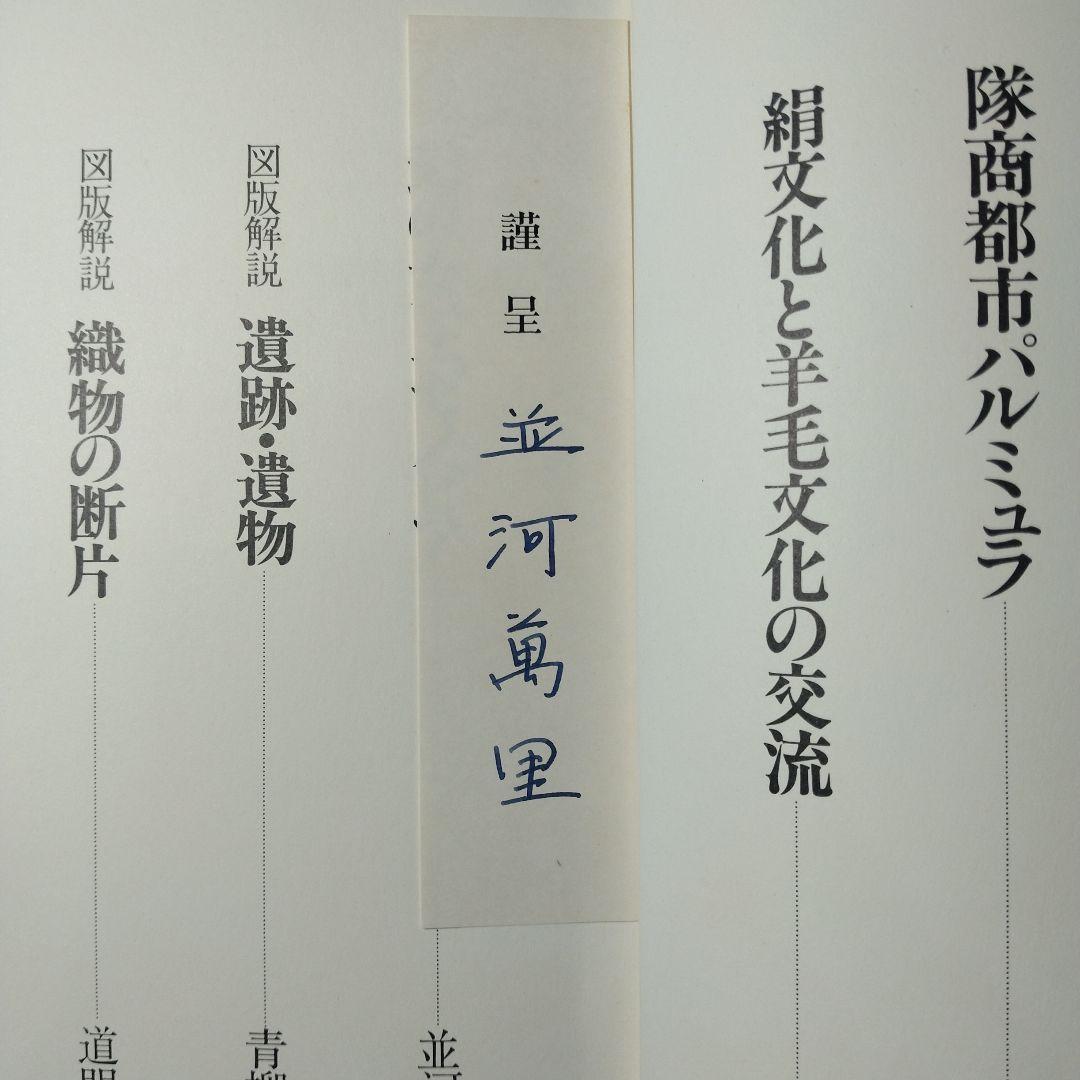 隊商都市パルミュラ
絹文化と羊毛文化の交流
謹呈
並河萬里
並河
図版解説 遺跡・遺物
青柳
図版解説 織物の断片
道明